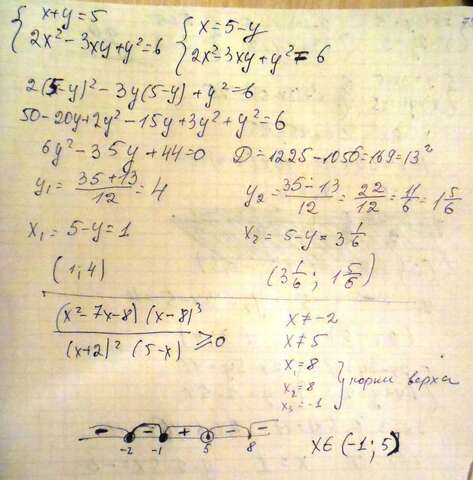 { x+y=5
2x²-3xy+y²=6
{ x=5-y
2x²-3xy+y²=6
2(5-y)²-3y(5-y)+y²=6
50-20y+2y²-15y+3y²+y²=6
6y²-35y+44=0 D=1225-1056=169=13²
y₁=(35+13)/12=4 y₂=(35-13)/12=22/12=11/6=1 5/6
x₁=5-y=1 x₂=5-y=3 1/6
(1;4) (3 1/6; 1 5/6)
(x²-7x-8)(x-8)³/(x+2)²(5-x) ≥0
x≠-2
x≠5
x₁=8
x₂=8
x₃=-1
} корни верха
- - + - -
-2 -1 5 8
x∈(-1;5)